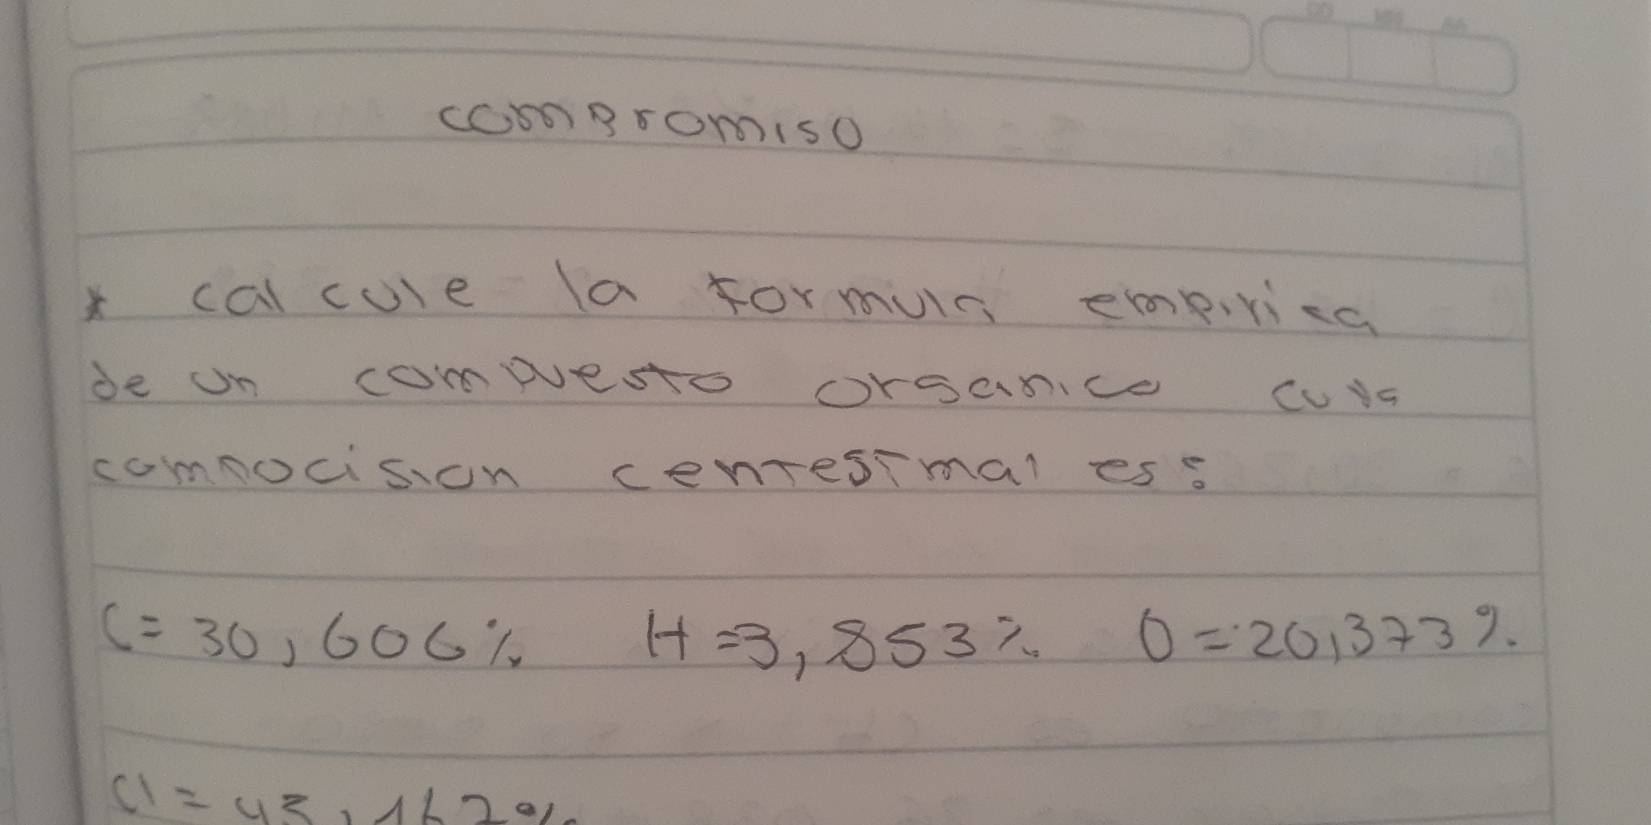 compromiso
* calcule la formula empirica
de un compuesto organico cuya
compocision centesimal es:
C= 30,606% H=3,853% O=20,373%
Cl = 45,167%